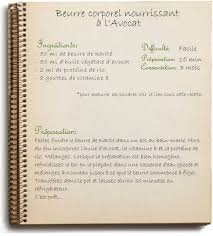 Beurre corporel nourrissant
à l'Avocat
Ingrédients:
- 50 ml de beurre de karité
- 50 ml d'huile végétale d'avocat
- 2 ml de protéines de riz
- 2 gouttes de vitamine E
Difficulté: Facile
Préparation: 15 min
Conservation: 3 mois
*pour mesurer les poudres voir le lien sous cette recette
Préparation:
Faites fondre le beurre de karité dans un bol au bain-marie. Hors
du feu incorporez l'huile d'avocat, la vitamine E et la protéine de
riz. Mélangez. Lorsque la préparation est bien homogène,
refroidissez le bol en le plongeant dans une casserole d'eau glacée et
mélangez énergiquement jusqu'à ce que le beurre commence à figer.
Transférez dans le pot et laissez durcir 30 minutes au
réfrigérateur.
C'est prêt...